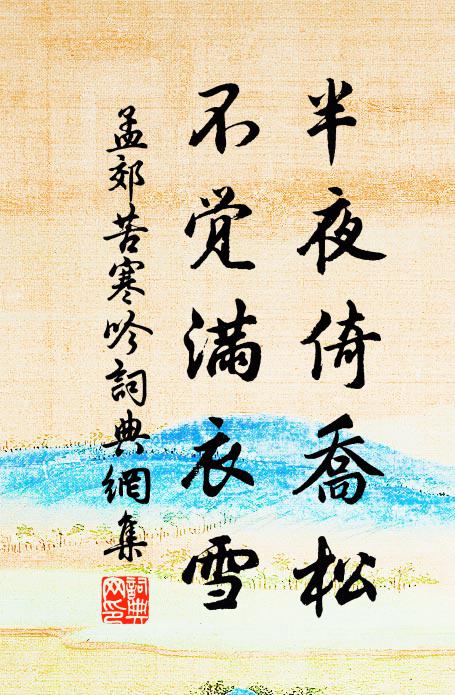 半夜倚喬松
不觉满衣雪
孟郊苦寒吟詞典網集
詞典